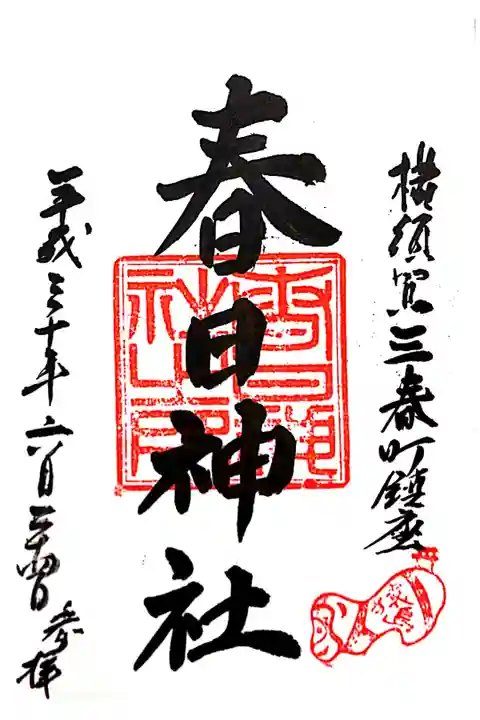 横須賀三春町鎮座
春日神社
平成三十年六月二十四日 参拝
春日神
社之印